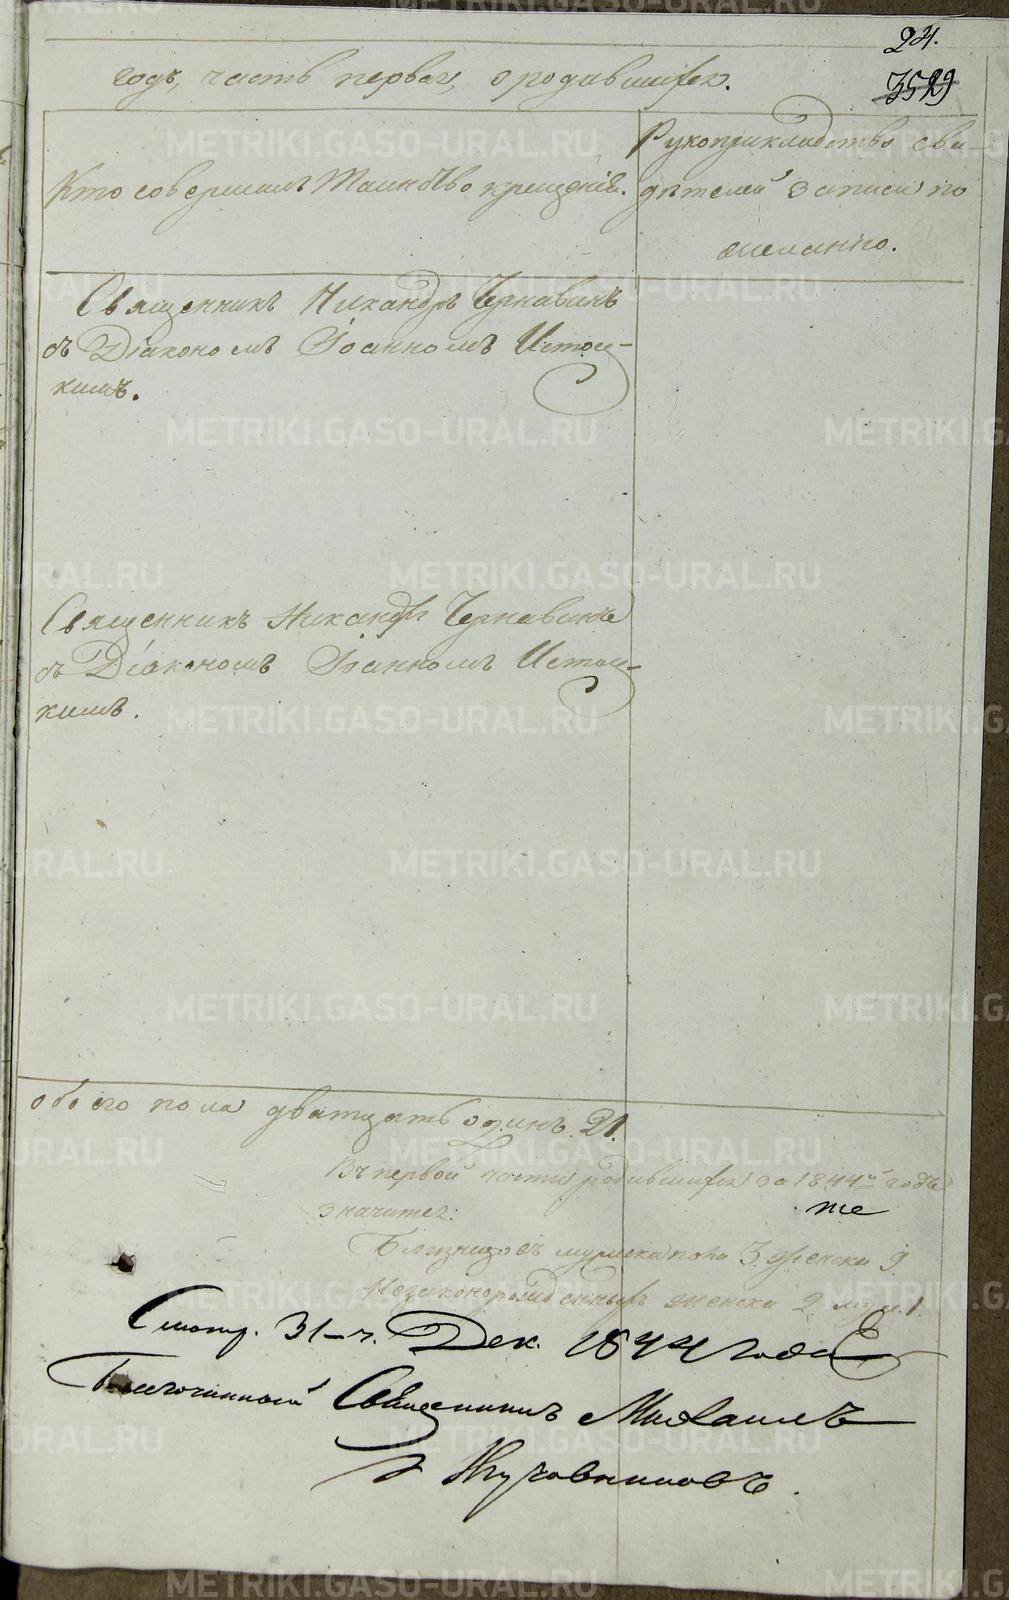 24.
3529
годъ, часть первая, о родившихся.
Кто совершалъ Таинство крещенія.
Рукоприкладство сви-
дѣтелей записи по
желанію.
Священникъ Никандръ Чернавинъ
съ Діакономъ Іоанномъ Истом-
кимъ.
Священникъ Никандръ Чернавинъ
съ Діакономъ Іоанномъ Истом-
кимъ.
обоего пола дватцать одинъ. 21.
Въ первой части родившихся за 1844й годъ
значится: те
Близнецовъ мужеска пола 3. женска 9.
Незаконорожденныхъ женска 2. муж. 1.
Смотр. 31-г. Дек. 1844 года
Благочинный Священникъ Михаилъ
METRIKI.GASO-URAL.RU